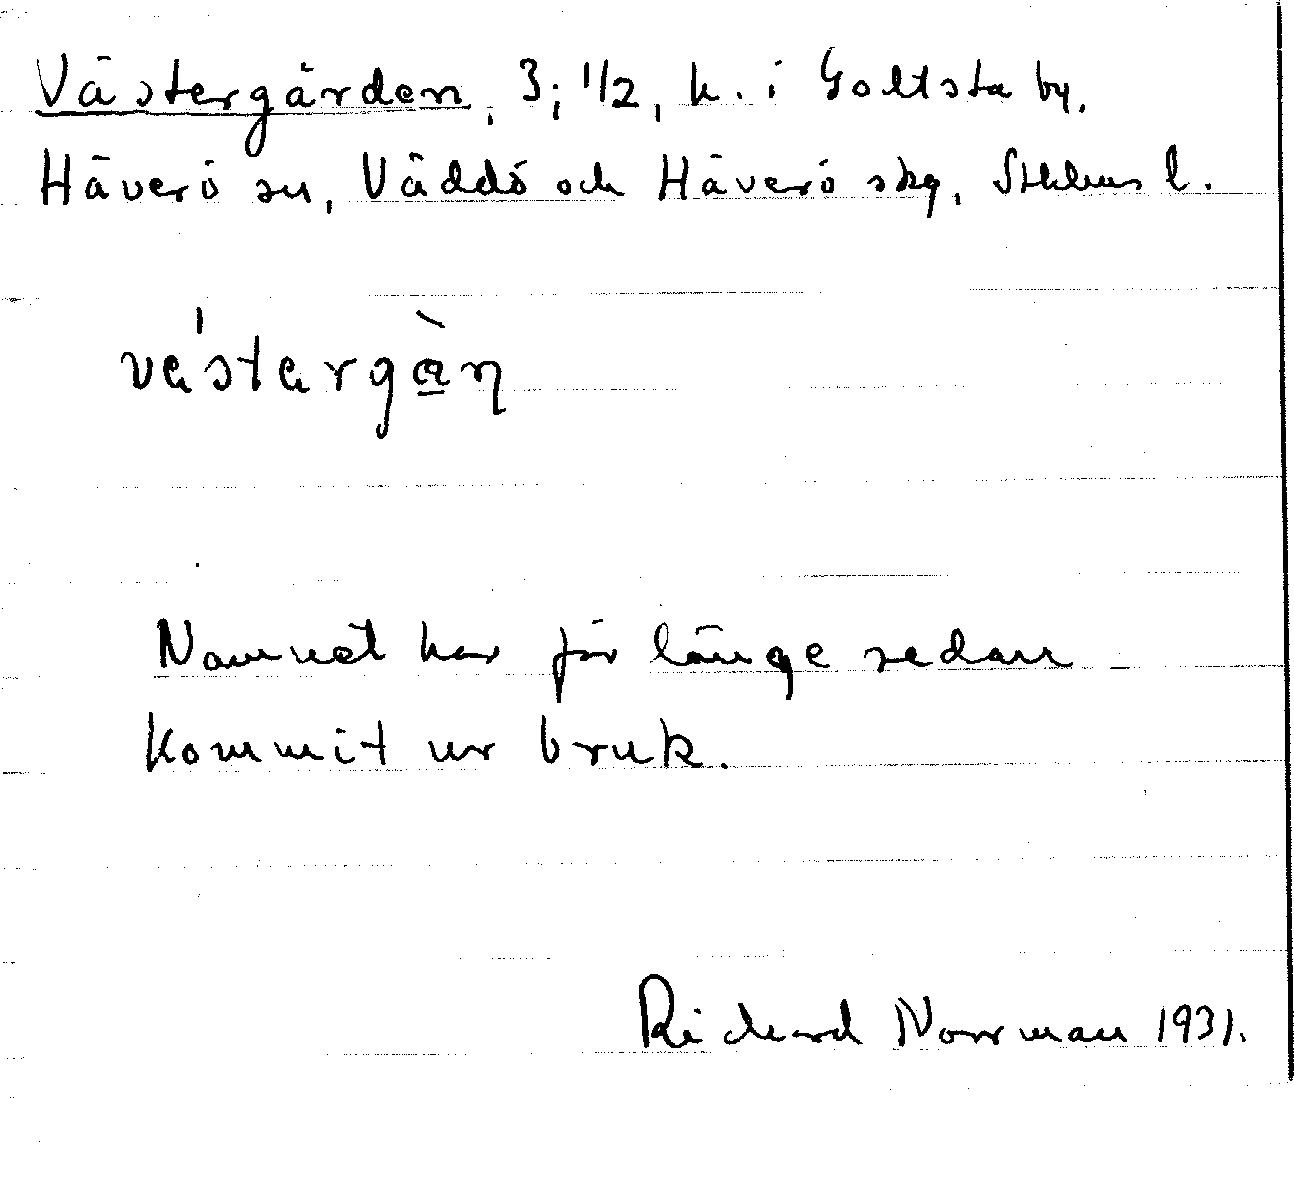 Västergården, 3; 1/2, h. i Goltsta by,
Häverö sn, Väddö och Häverö skg, Sthlms l.
västərgån
Namnet har för länge sedan
kommit ur bruk.
Richard Norrman 1931.